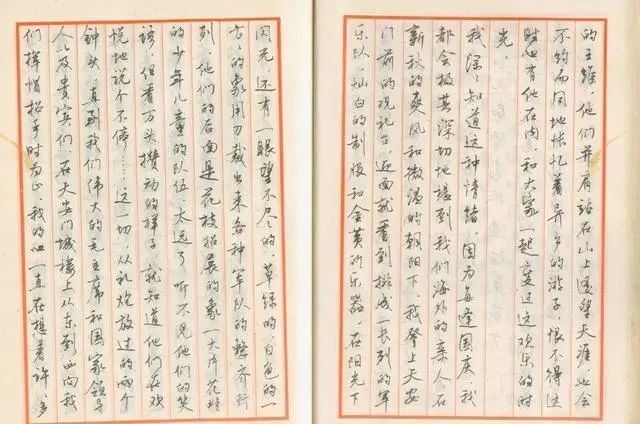 的王维，他们并肩站在山上遥望天涯，也会
不约而同地怅忆着异乡的游子，恨不得这
时也有他在内，和大家一起度过这欢乐的时
光。
我深深知道这种情绪，因为每逢国庆，我
都会极其深切地想到我们海外的亲人。在
新秋的爽风和微温的朝阳下，我登上天安
门前的观礼台，迎面就看到排成一长列的军
乐队，灿白的制服和金黄的乐器，在阳光下
闪光。还有一眼望不尽的，草绿的，白色的一
方方的象用刀裁出来各种军队的整齐行
列，他们的后面是花枝招展的象一大片花畦
的少年儿童的队伍，太远了，听不见他们的笑
语，但看万头攒动的样子，就知道他们在欢
悦地说个不停……这一切，从礼炮放过的两个
钟头，直到我们伟大的毛主席和国家领导
人以及贵宾们，在天安门城楼上从东到西向我
们挥帽招手时为止，我的心一直在想着许多